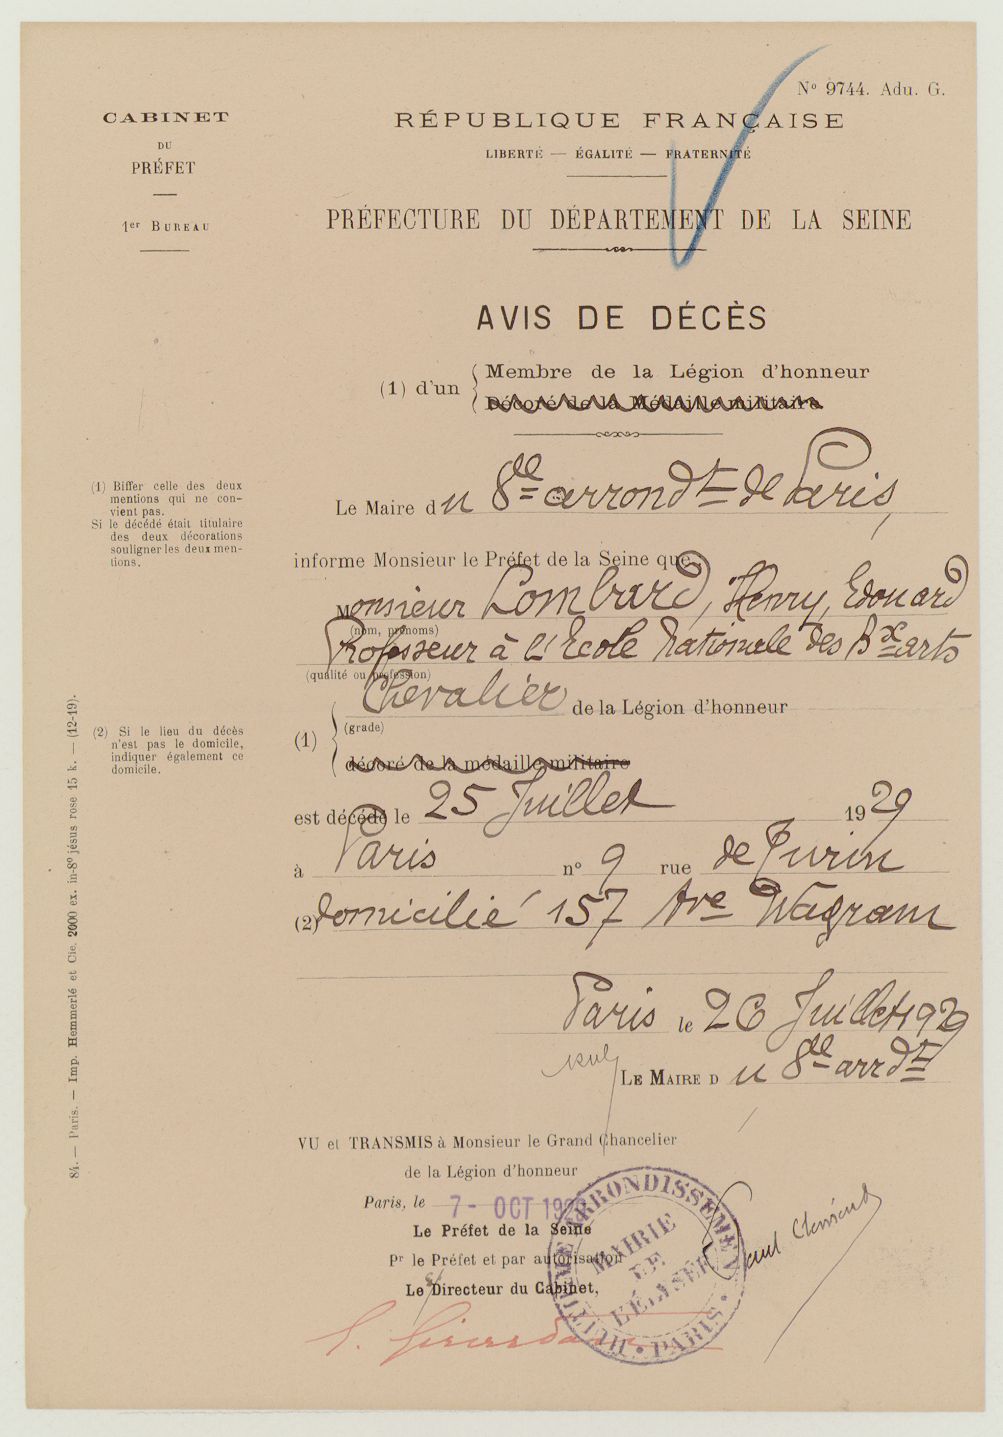 Nº 9744. Adu. G.
CABINET
DU
PRÉFET
1er BUREAU
RÉPUBLIQUE FRANÇAISE
LIBERTÉ — ÉGALITÉ — FRATERNITÉ
PRÉFECTURE DU DÉPARTEMENT DE LA SEINE
AVIS DE DÉCÈS
(1) d'un
Membre de la Légion d'honneur
Décoré de la Médaille militaire
(1) Biffer celle des deux
mentions qui ne con-
vient pas.
Si le décédé était titulaire
des deux décorations
souligner les deux men-
tions.
Le Maire du 8e arrondt de Paris,
informe Monsieur le Préfet de la Seine que
Monsieur Lombard, Henry, Edouard
(nom, prénoms)
Professeur à l'Ecole Nationale des Bx arts
(qualité ou profession)
Chevalier de la Légion d'honneur
(grade)
(1)
décoré de la médaille militaire
(2) Si le lieu du décès
n'est pas le domicile,
indiquer également ce
domicile.
est décédé le 25 Juillet 1929
à Paris nº 9 rue de Turin
(2) domicilié 157 Ave Wagram
Paris le 26 Juillet 1929
LE MAIRE du 8e arrdt
VU et TRANSMIS à Monsieur le Grand Chancelier
de la Légion d'honneur
Paris, le 7 - OCT 192
Le Préfet de la Seine
Pr le Préfet et par autorisation
Le Directeur du Cabinet,
HUITIÈME ARRONDISSEMENT • PARIS •
MAIRIE
DE
L'ÉLYSÉE
84. — Paris. — Imp. Hemmerlé et Cie. 2000 ex. in-8º jésus rose 15 k. — (12-19).